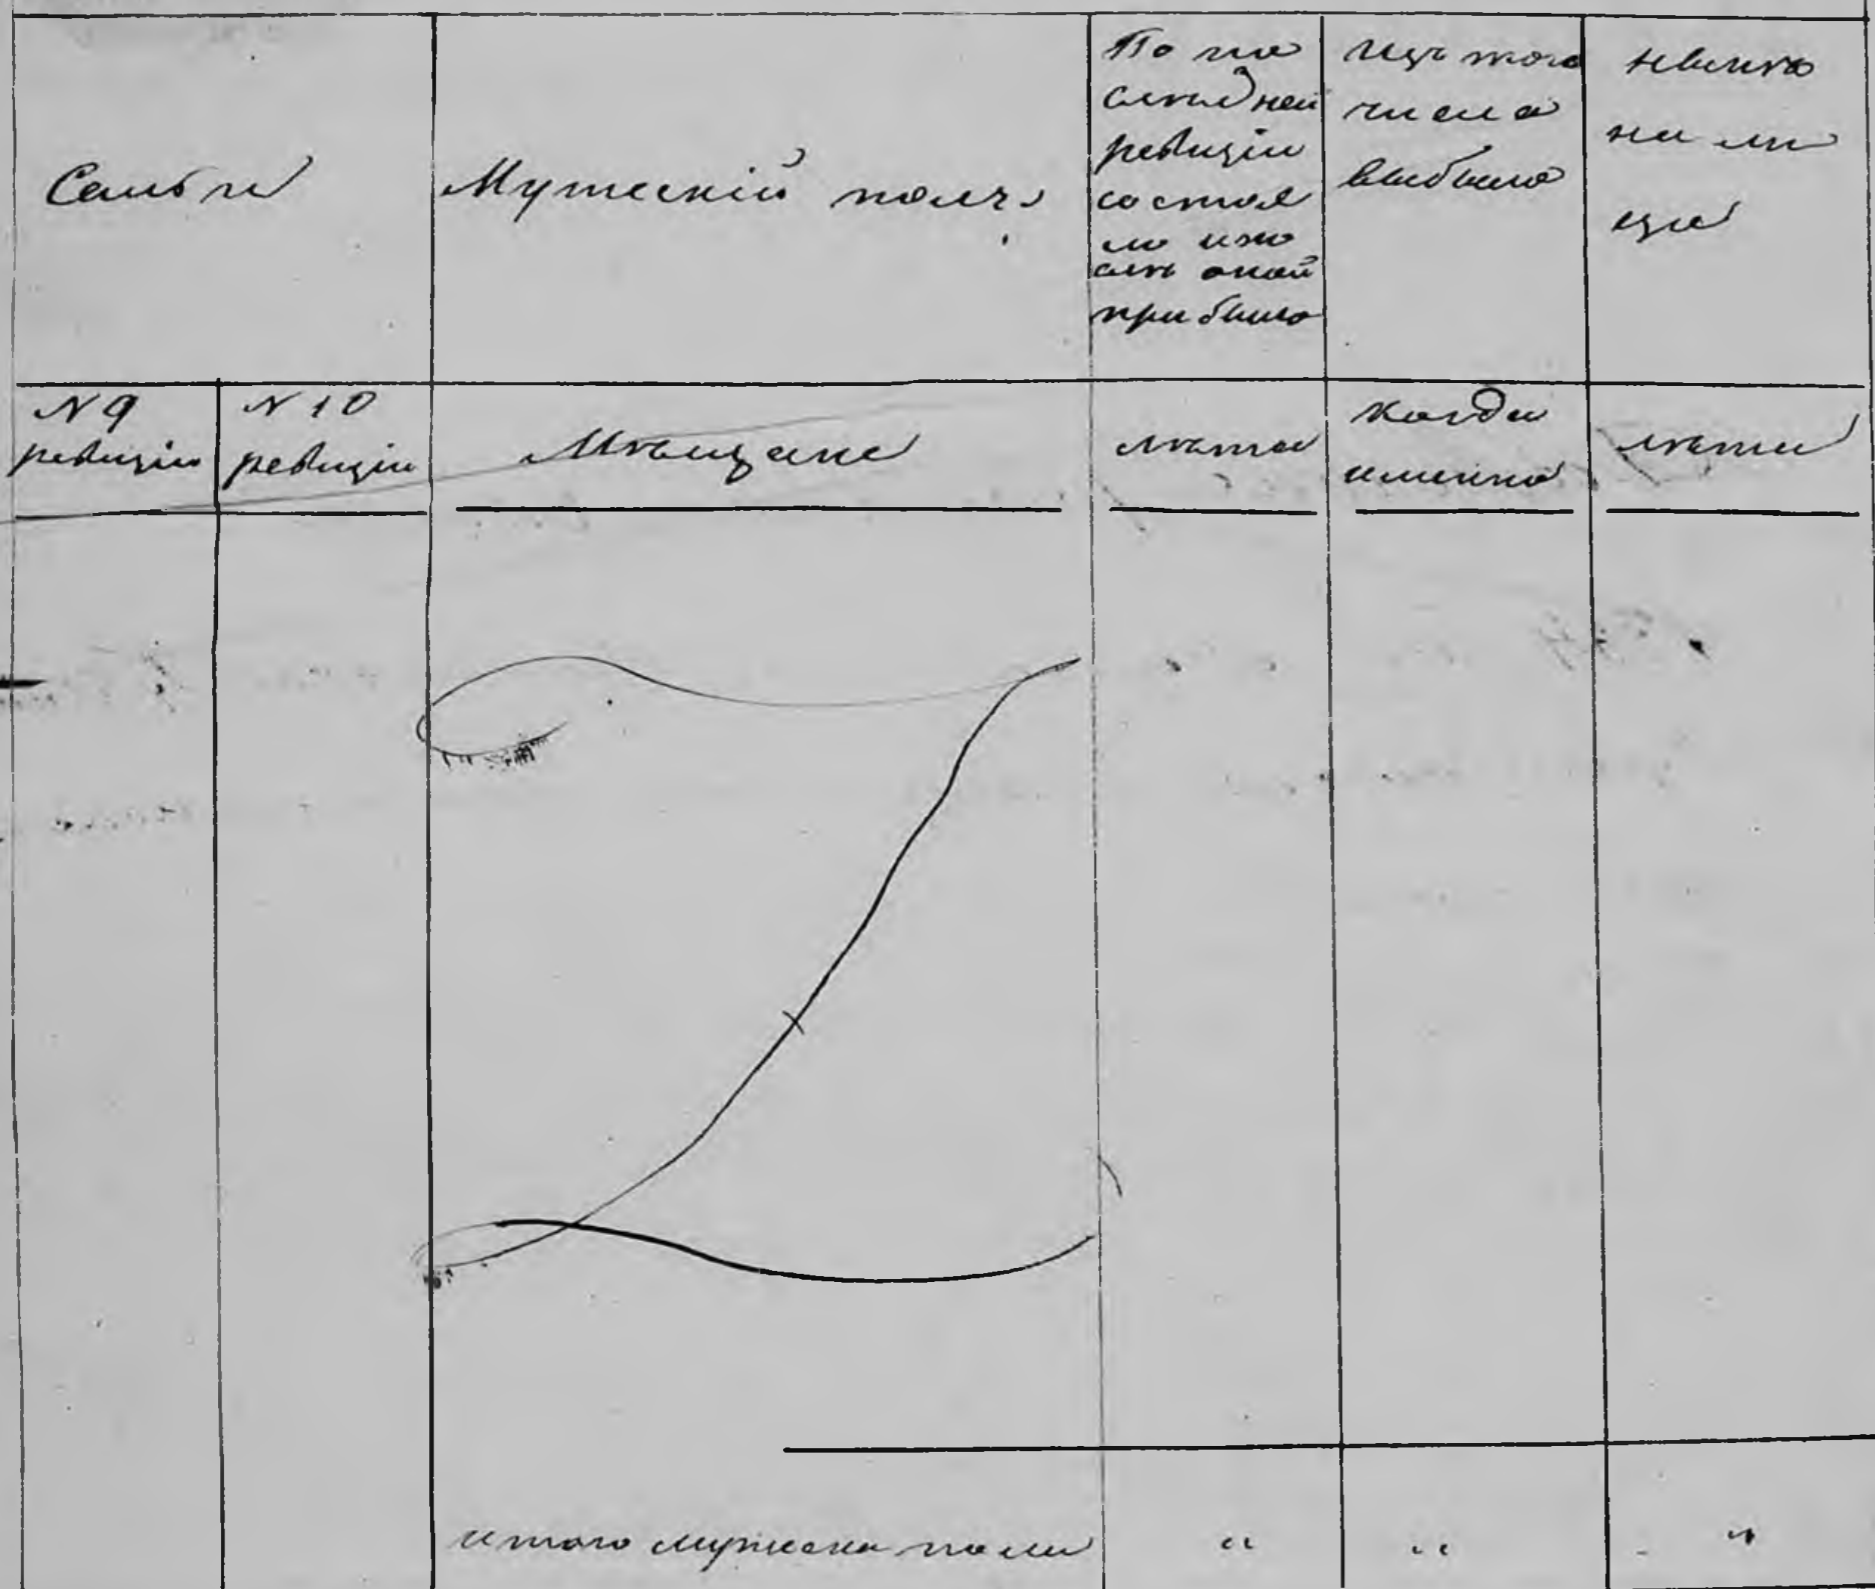 Семьи
Мужескій полъ
По по
слѣдней
ревизіи
состоя
ло и по
слѣ оной
прибыло
Изъ того
числа
выбыло
нынѣ
на ли
цѣ
N 9
ревизіи
N 10
ревизіи
Мѣщане
лѣта
когда
именно
лѣта
итого мужеска пола
"
"
"